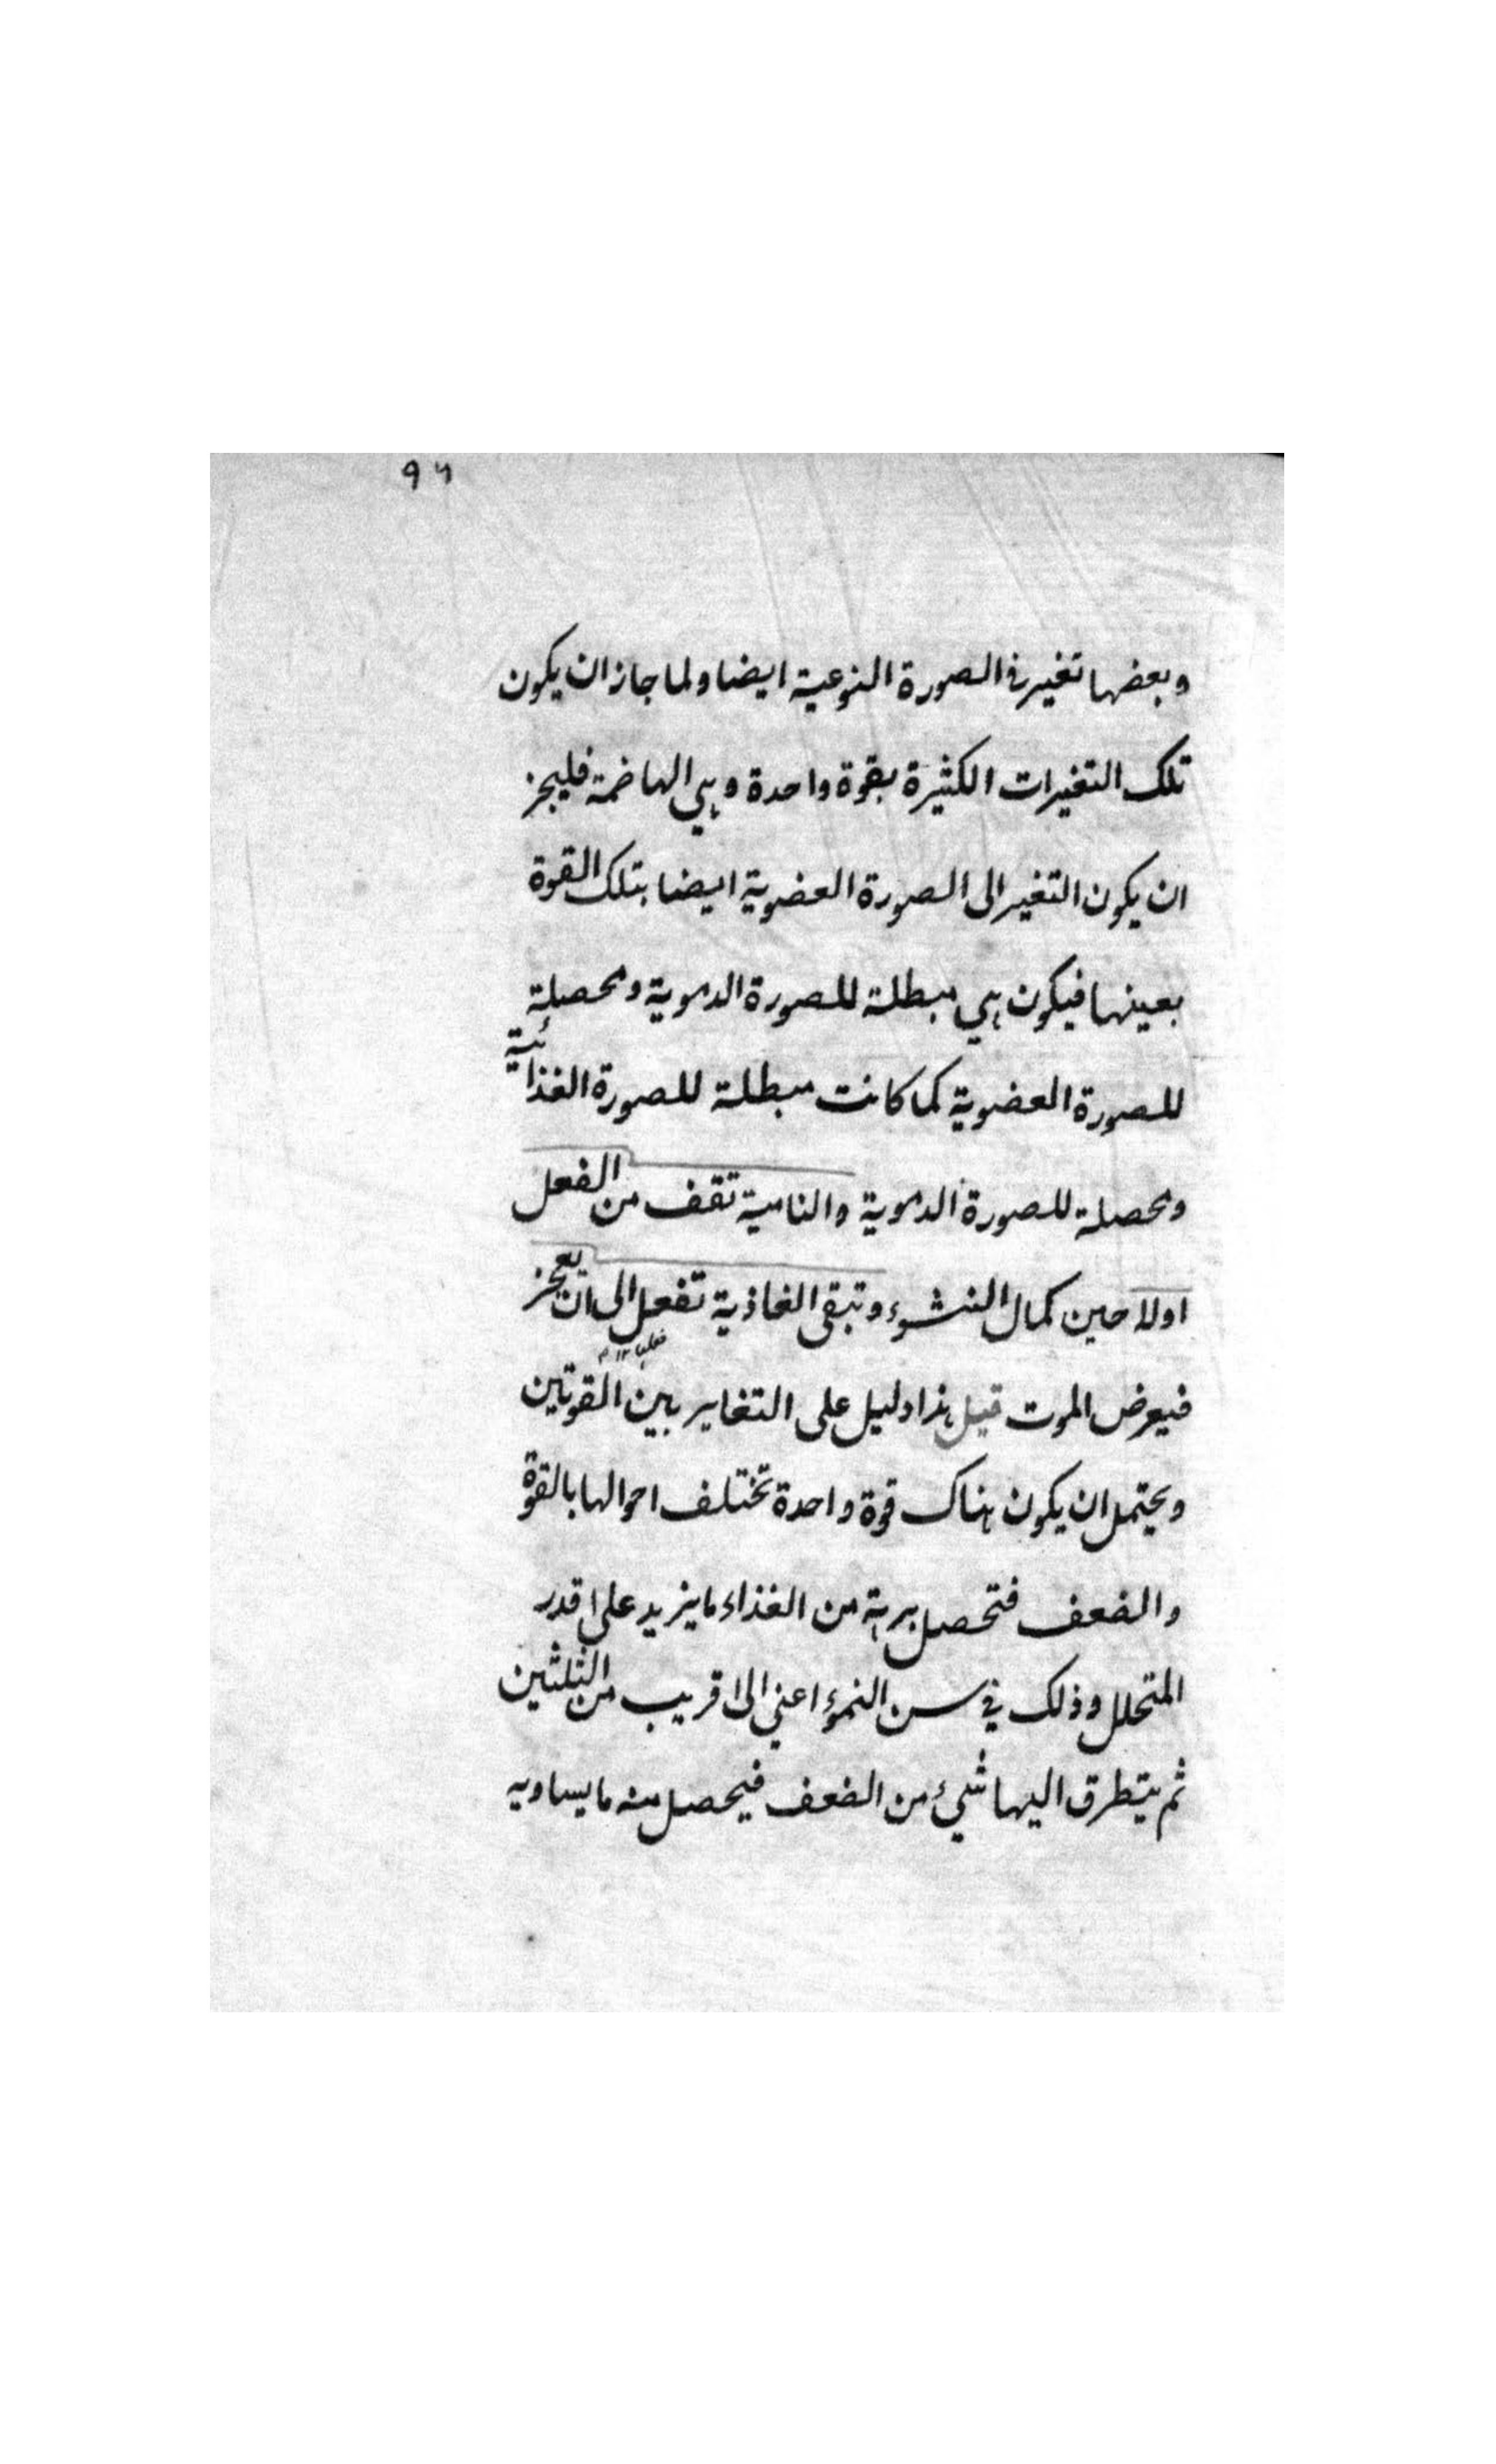 ٩٦
وبعضها تغير في الصورة النوعية ايضا ولما جاز ان يكون
تلك التغيرات الكثيرة بقوة واحدة وهي الهاضمة فليجز
ان يكون التغير الى الصورة العضوية ايضا بتلك القوة
بعينها فيكون هي مبطلة للصورة الدموية ومحصلة
للصورة العضوية كما كانت مبطلة للصورة الغذائية
ومحصلة للصورة الدموية والنامية تقف من الفعل
اولا حين كمال النشوء وتبقى الغاذية تفعل الى ان تعجز
فيعرض الموت قيل هذا دليل على التغاير بين القوتين
ويحتمل ان يكون هناك قوة واحدة تختلف احوالها بالقوة
والضعف فتحصل من الغذاء ما يزيد على قدر
المتحلل وذلك في سن النمو اعني الى قريب من الثلثين
ثم يتطرق اليها شيء من الضعف فيحصل منه ما يساويه